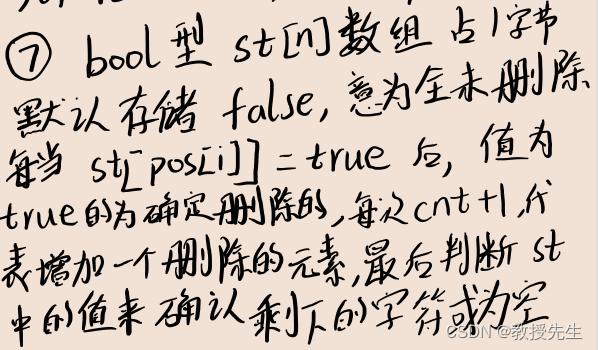 ⑦ bool型 st[n]数组 占1字节
默认存储 false, 意为全未删除
每当 st[pos[i]] = true 后, 值为
true的为确定删除的, 每次cnt+1, 代
表增加一个删除的元素, 最后判断 st
中的值来确认剩下的字符或为空
CSDN @教授先生